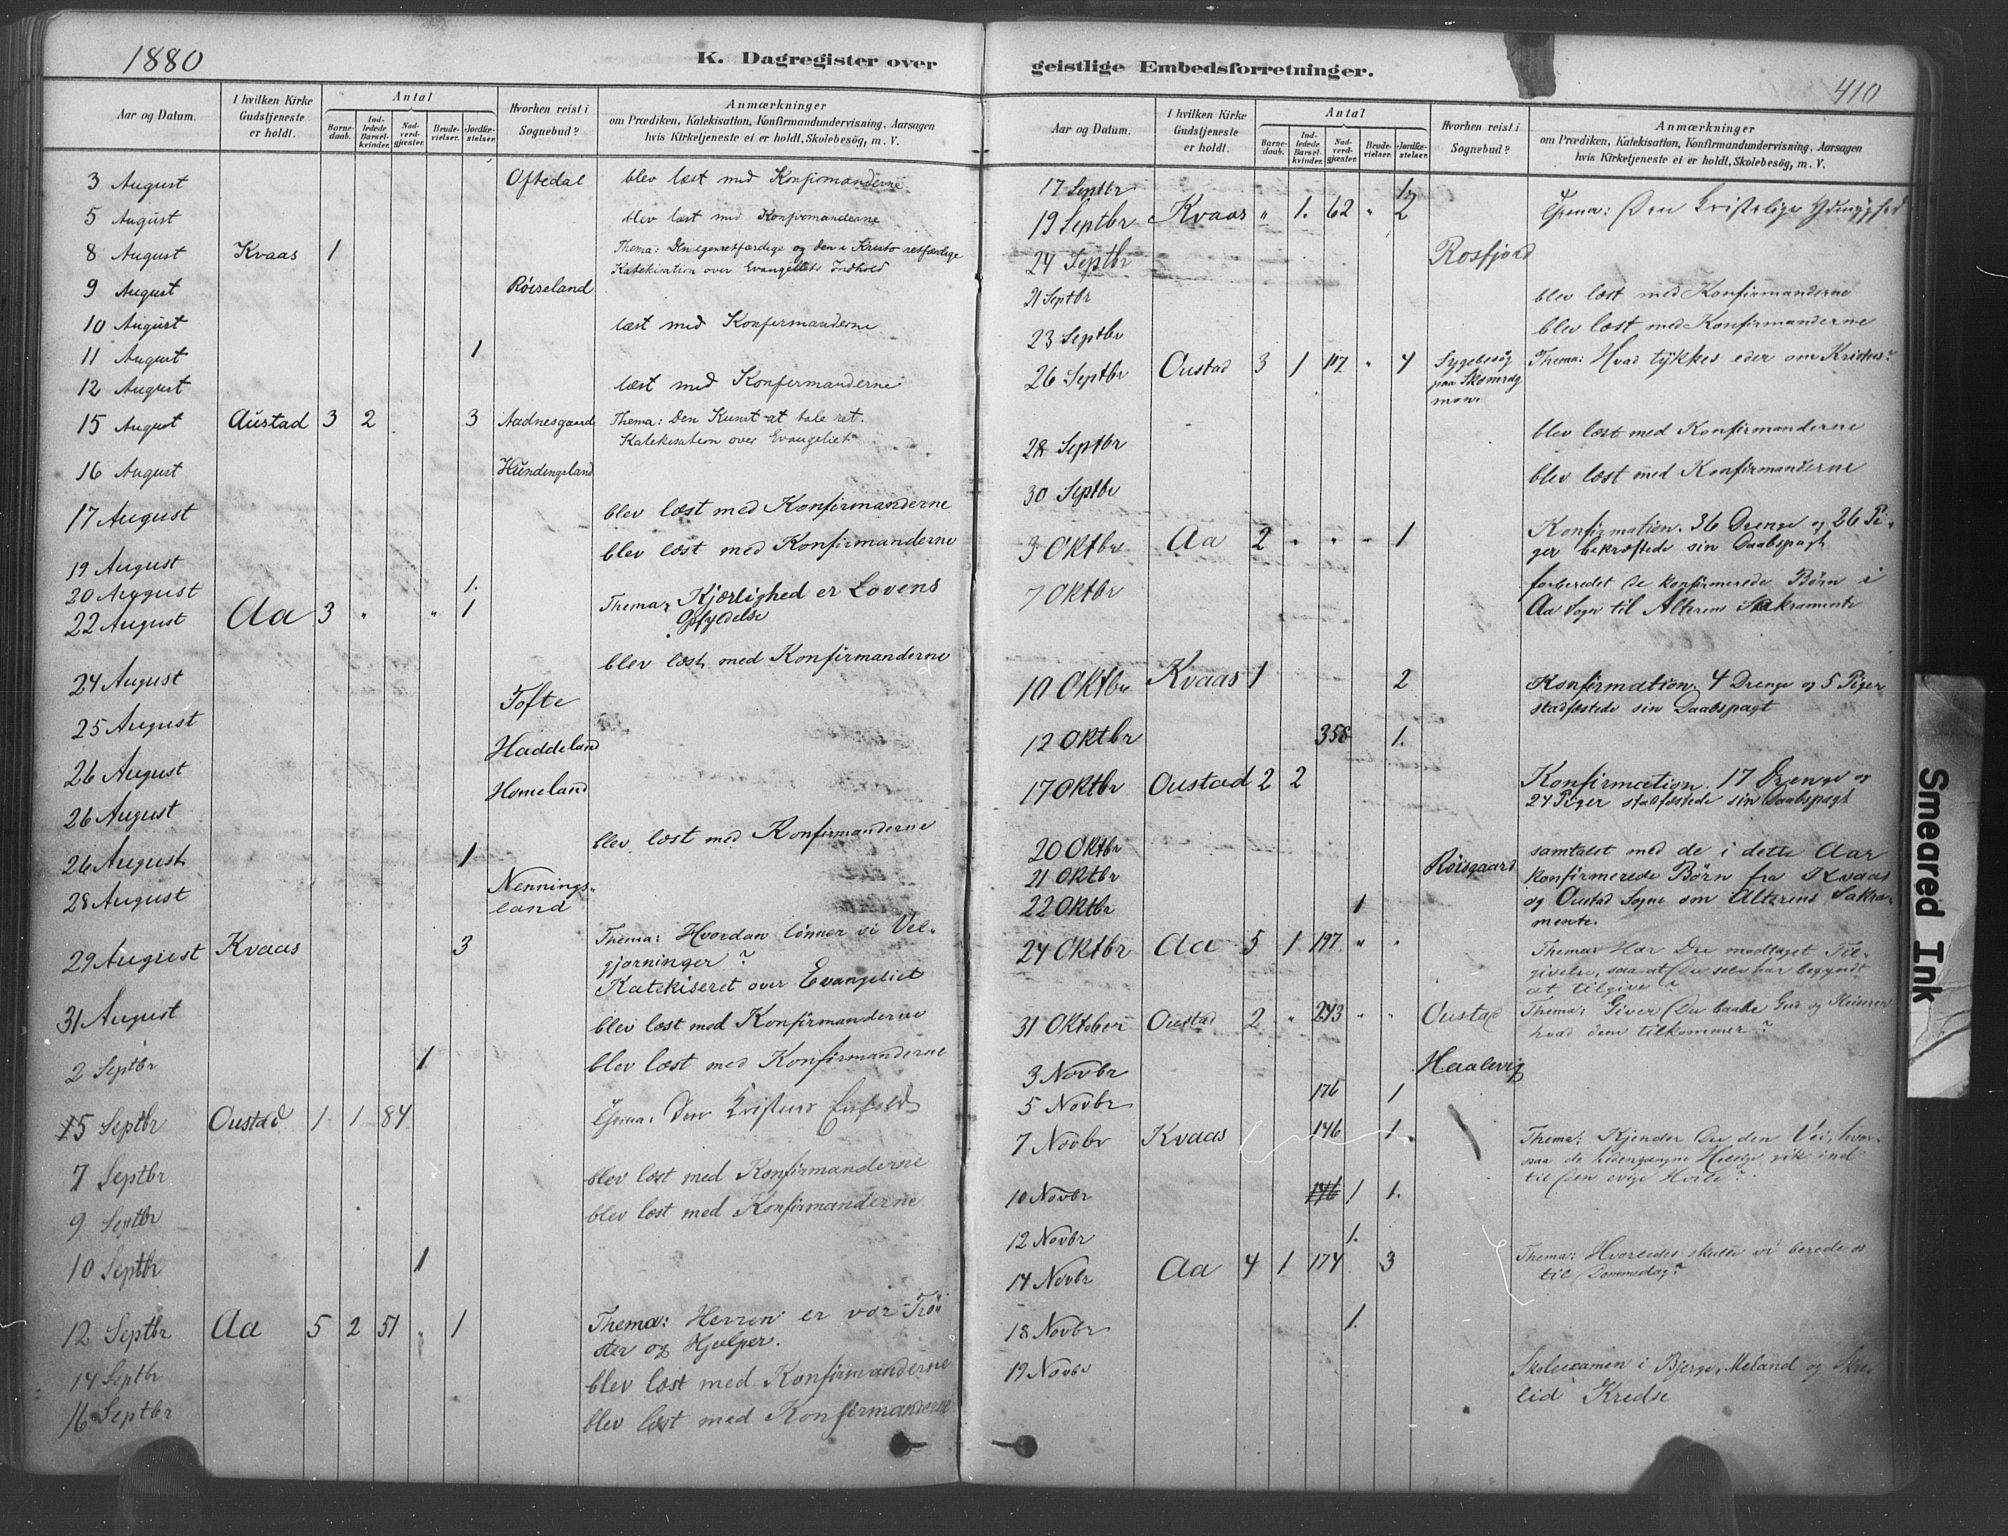 1880
K. Dagregister over
Aar og Datum.
I hvilken Kirke Gudstjeneste er holdt.
Antal
Barne- daab.
Ind- ledede Barsel- kvinder.
Nad- verd- gjæster.
Brude- vielser.
Jordfæ- stelser.
Hvorhen reist i Sognebud?
Anmærkninger
om Prædiken, Katekisation, Konfirmandundervisning, Aarsagen
hvis Kirketjeneste ei er holdt, Skolebesög, m. V.
3 August Oftedal blev læst med Konfirmanderne
5 August blev læst med Konfirmanderne
8 August Kvaas 1 Thema: Den egenretfærdige og den i Kristo retfærdige
Katekisation over Evangeliets Indhold
9 August Röiseland
10 August læst med Konfermanderne
11 August 1
12 August læst med Konfermanderne
15 August Austad 3 2 3 Aadnesgaard Thema: Den Kunst at tale ret.
Katekisation over Evangeliet
16 August Hundingsland
17 August blev læst med Konfirmanderne
19 August blev læst med Konfirmanderne
20 August 1.
22 August Aa 3 " " 1 Thema: Kjærlighed er Lovens
Opfyldelse
24 August blev læst med Konfirmanderne
25 August Tofte
26 August Haddeland
26 August Homeland
26 August 1 blev læst med Konfirmanderne
28 August Nennings-
land
29 August Kvaas 3 Thema: Hvordan lönner vi Vel-
gjörninger?
Katekiseret over Evangeliet
31 August blev læst med Konfirmanderne
2 Septbr 1 blev læst med Konfirmanderne
5 Septbr Oustad 1 1 84 Thema: Den Kristnes Enfold
7 Septbr blev læst med Konfirmanderne
9 Septbr blev læst med Konfirmanderne
10 Septbr 1
12 Septbr Aa 5 2 51 1 Thema: Herren er vor Trö-
ster og Hjælper.
14 Septbr blev læst med Konfirmanderne
16 Septbr blev læst med Konfirmanderne
geistlige Embedsforretninger.
410
Aar og Datum.
I hvilken Kirke Gudstjeneste er holdt.
Antal
Barne- daab.
Ind- ledede Barsel- kvinder.
Nad- verd- gjæster.
Brude- vielser.
Jordfæ- stelser.
Hvorhen reist i Sognebud?
Anmærkninger
om Prædiken, Katekisation, Konfirmandundervisning, Aarsagen
hvis Kirketjeneste ei er holdt, Skolebesög, m. V.
17 Septbr 1
19 Septbr Kvaas " 1. 62 " 2 Thema: Den kristelige Ydmyghed
24 Septbr Rosfjord
21 Septbr blev læst med Konfirmanderne
23 Septbr blev læst med Konfirmanderne
26 Septbr Oustad 3 1 117 " 4 Sygebesög paa Thema: Hvad tykkes eder om Kristus?
28 Septbr blev læst med Konfirmanderne
30 Septbr blev læst med Konfirmanderne
3 Oktbr Aa 2 " " " 1 Konfirmation. 36 Drenge og 26 Pi-
ger bekræftede sin Daabspagt
7 Oktbr forberedet de konfirmerede Börn i
Aa Sogn til Alterens Sakramente
10 Oktbr Kvaas 1 2 Konfirmation. 4 Drenge og 5 Piger
stadfæstede sin Daabspagt
12 Oktbr 358 1.
17 Oktbr Oustad 2 2 Konfirmation. 17 Drenge og
24 Piger stadfæstede sin Daabspagt
20 Oktbr samtalet med de i dette Aar
21 Oktbr Röisgaard konfirmerede Börn fra Kvaas
22 Oktbr 1 og Oustad Sogne om Alterens Sakra-
mente.
24 Oktbr Aa 5 1 197 " " Thema: Har Du modtaget Til-
givelse, saa at Du selv har begyndt
at tilgive?
31 Oktober Oustad 2 " 243 " " Oustad Thema: Giver Du baade Gud og Keiseren
hvad dem tilkommer?
3 Novbr Haalevig
5 Novbr 176 1
7 Novbr Kvaas 146 1. Thema: Kjender Du den Vei, hvor-
paa de hedengangne Hellige gik ind
til den evige Hvile?
10 Novbr 146 1 1.
12 Novbr 1.
14 Novbr Aa 4 1 174 3 Thema: Hvorledes skulle vi berede os
til Dommedag?
18 Novbr 1.
19 Novbr Skoleexamen i Bjerge, Meland og Skre-
lid Kredse
Smeared Ink